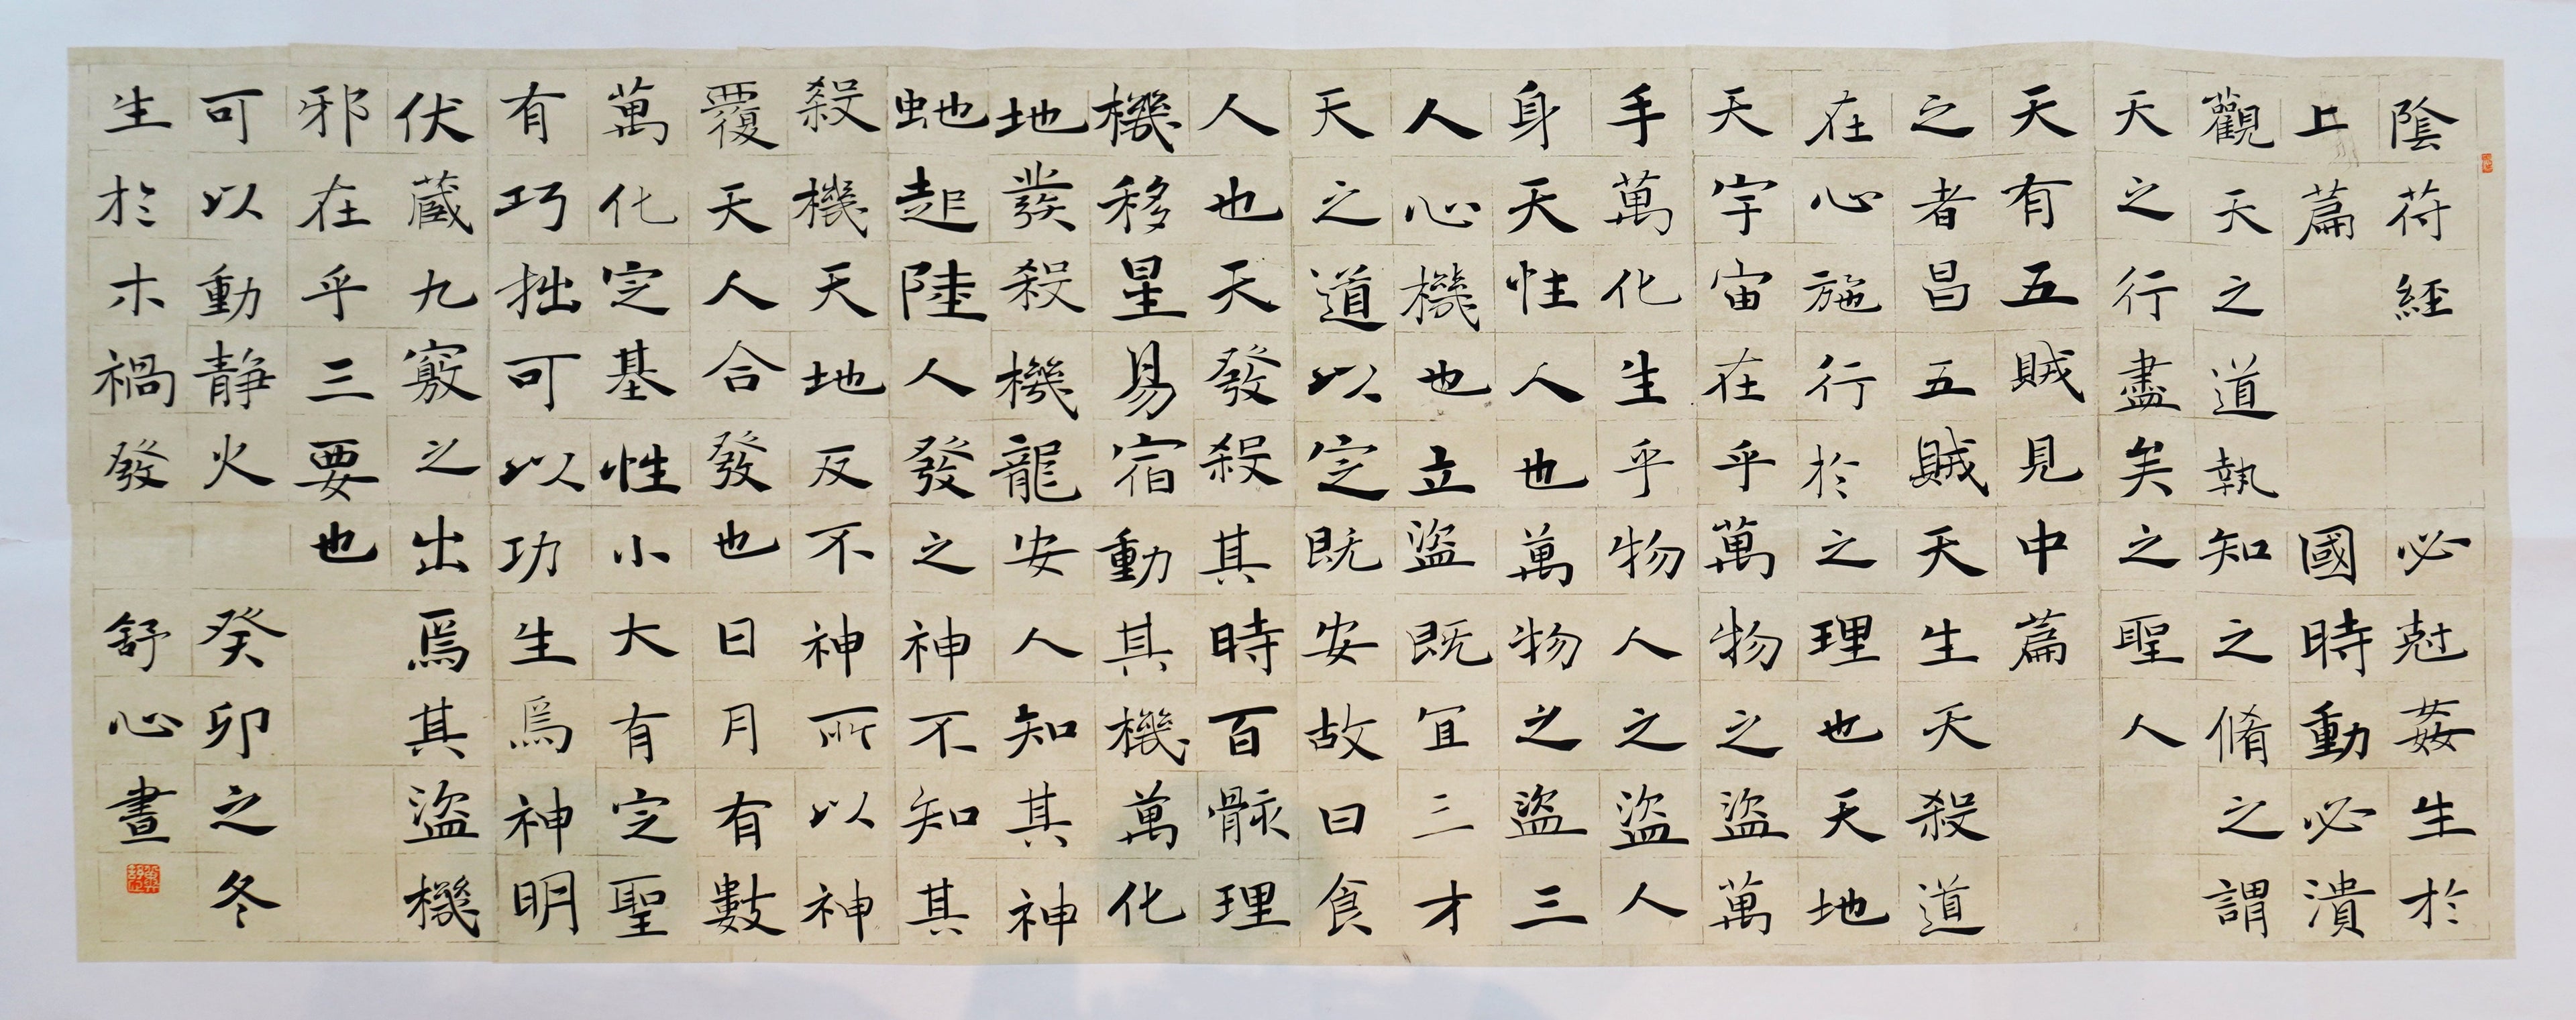 陰符經
上篇
觀天之道執
天之行盡矣
天有五賊見
之者昌五賊
在心施行於
天宇宙在乎
手萬化生乎
身天性人也
人心機也立
天之道以定
人也天發殺
機移星易宿
地發殺機龍
虵起陸人發
殺機天地反
覆天人合發
萬化定基性
有巧拙可以
伏藏九竅之
邪在乎三要
可以動静火
生於木禍發
必尅姦生於
國時動必潰
知之脩之謂
之聖人
中篇
天生天殺道
之理也天地
萬物之盜萬
物人之盜人
萬物之盜三
盜既宜三才
既安故曰食
其時百骸理
動其機萬化
安人知其神
之神不知其
不神所以神
也日月有數
小大有定聖
功生焉神明
出焉其盜機
也
癸卯之冬
舒心書